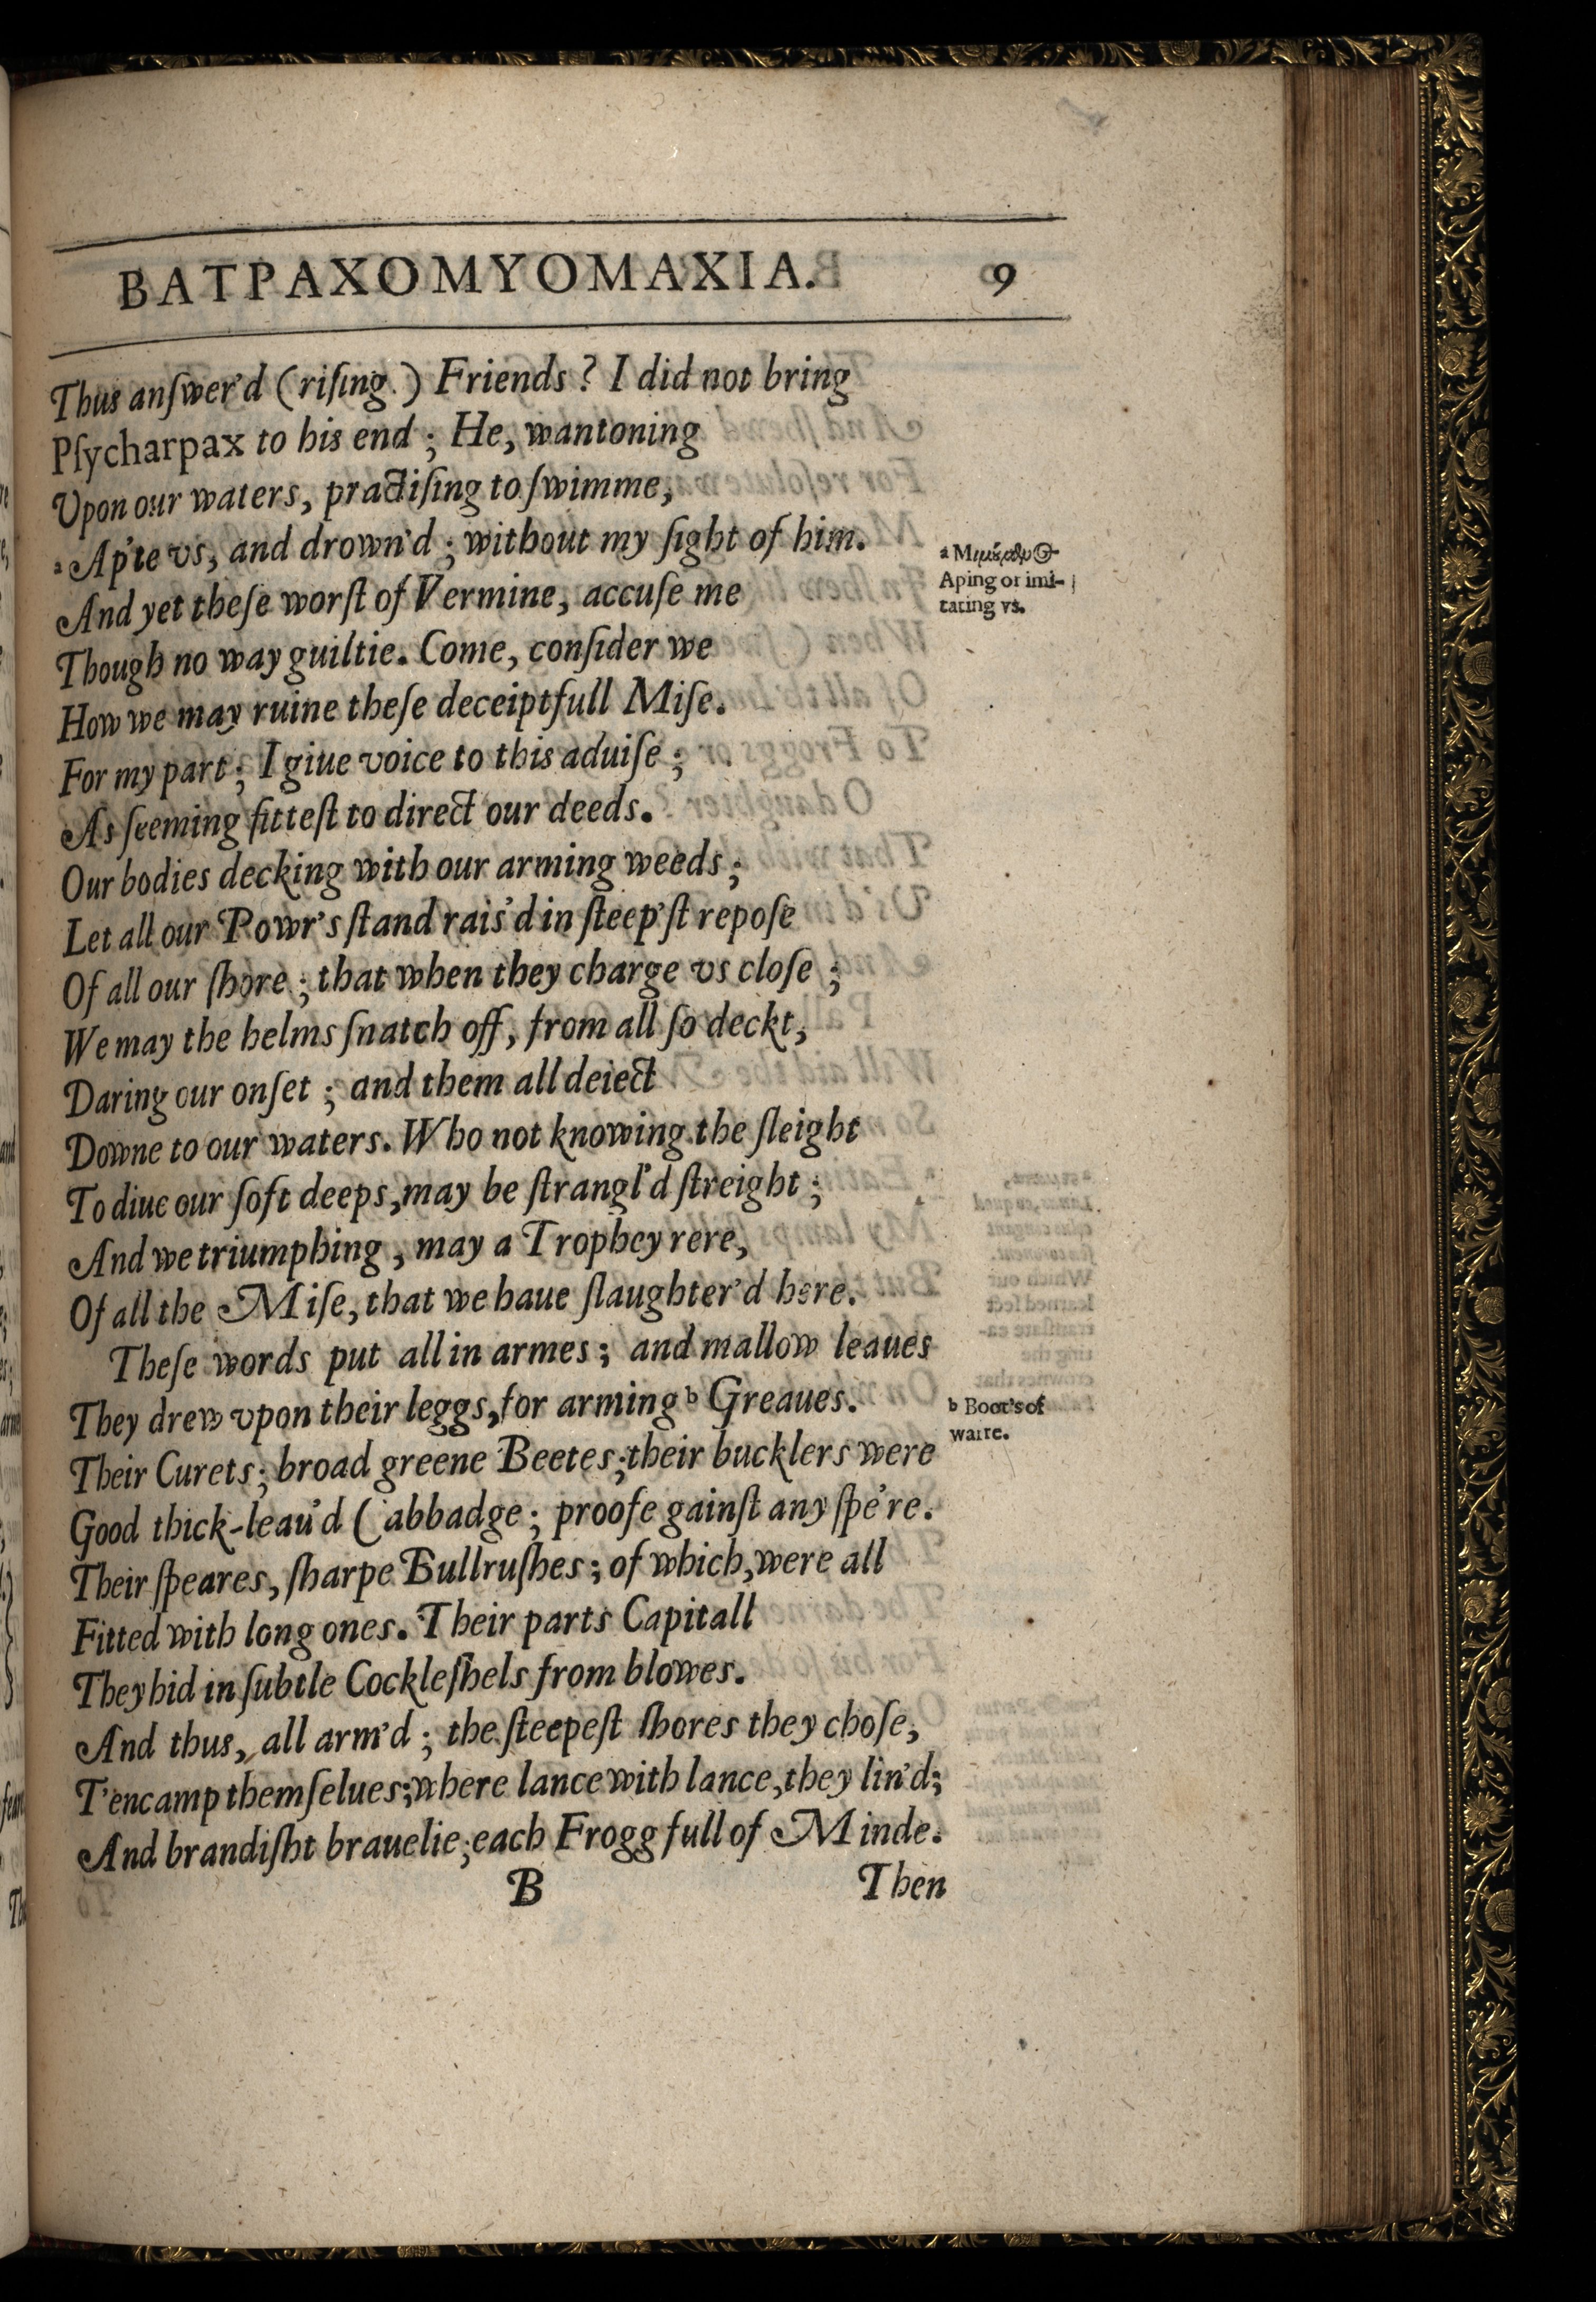 BATPAXOMYOMAXIA. 9
Thus anſwer'd (riſing.) Friends? I did not bring
Pſycharpax to his end; He, wantoning
Vpon our waters, practiſing to ſwimme,
a Ap'te vs, and drown'd; without my ſight of him.
a Μιμέμδυ@
Aping or imi-
tating vs.
And yet theſe worſt of Vermine, accuſe me
Though no way guiltie. Come, conſider we
How we may ruine theſe deceiptfull Miſe.
For my part; I giue voice to this aduiſe;
As ſeeming fitteſt to direct our deeds.
Our bodies decking with our arming weeds;
Let all our Powr's ſtand rais'd in ſteep'ſt repoſe
Of all our ſhore; that when they charge vs cloſe;
We may the helms ſnatch off, from all ſo deckt,
Daring our onſet; and them all deiect
Downe to our waters. Who not knowing the ſleight
To diue our ſoft deeps, may be ſtrangl'd ſtreight;
And we triumphing, may a Trophey rere,
Of all the Miſe, that we haue ſlaughter'd here.
Theſe words put all in armes; and mallow leaues
They drew vpon their leggs, for arming b Greaues.
b Boot's of
warre.
Their Curets; broad greene Beetes; their bucklers were
Good thick-leau'd Cabbadge; proofe gainſt any ſpe're.
Their ſpeares, ſharpe Bullruſhes; of which, were all
Fitted with long ones. Their parts Capitall
They hid in ſubtle Cockleſhels from blowes.
And thus, all arm'd; the ſteepeſt ſhores they choſe,
T'encamp themſelues; where lance with lance, they lin'd;
And brandiſht brauelie; each Frogg full of Minde.
B Then